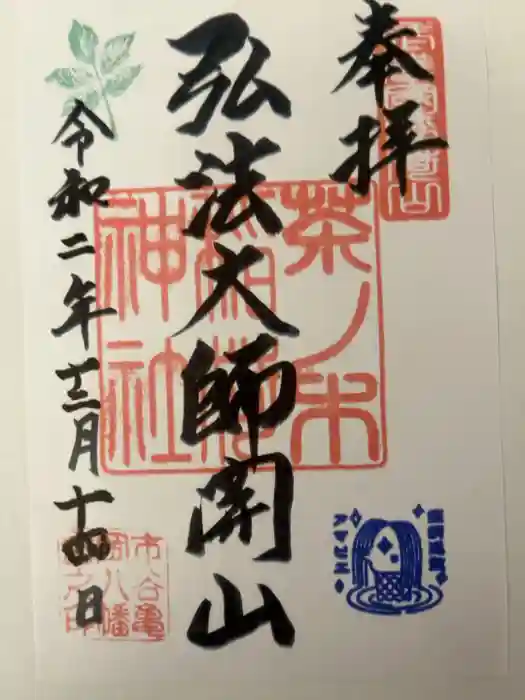 奉拝
弘法大師開山
令和二年十二月十四日
茶ノ木
稲荷
神社
市谷亀
岡八幡